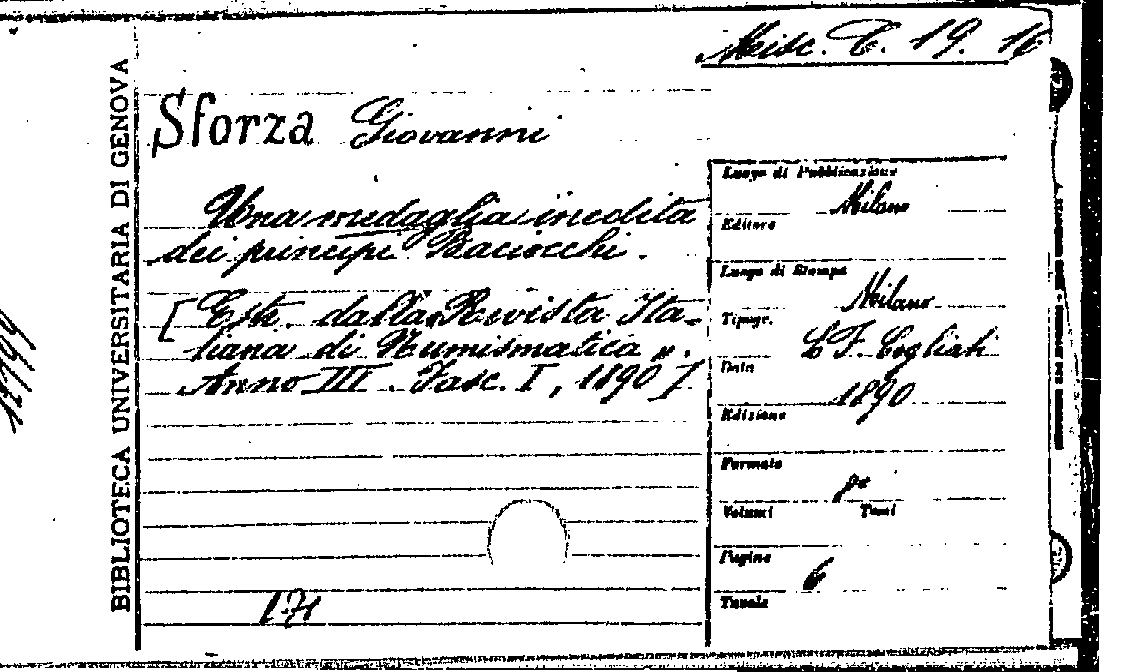 Misc. C. 19. 16
BIBLIOTECA UNIVERSITARIA DI GENOVA
Sforza Giovanni
Una medaglia inedita
dei principi Baciocchi.
[Estr. dalla "Rivista Ita-
liana di Numismatica".
Anno III. Fasc. I, 1890]
171
Luogo di Pubblicazione
Milano
Editore
Luogo di Stampa
Milano
Tipogr.
L. F. Cogliati
Data
1890
Edizione
Formato
8°
Volumi Tomi
Pagine
6
Tavole